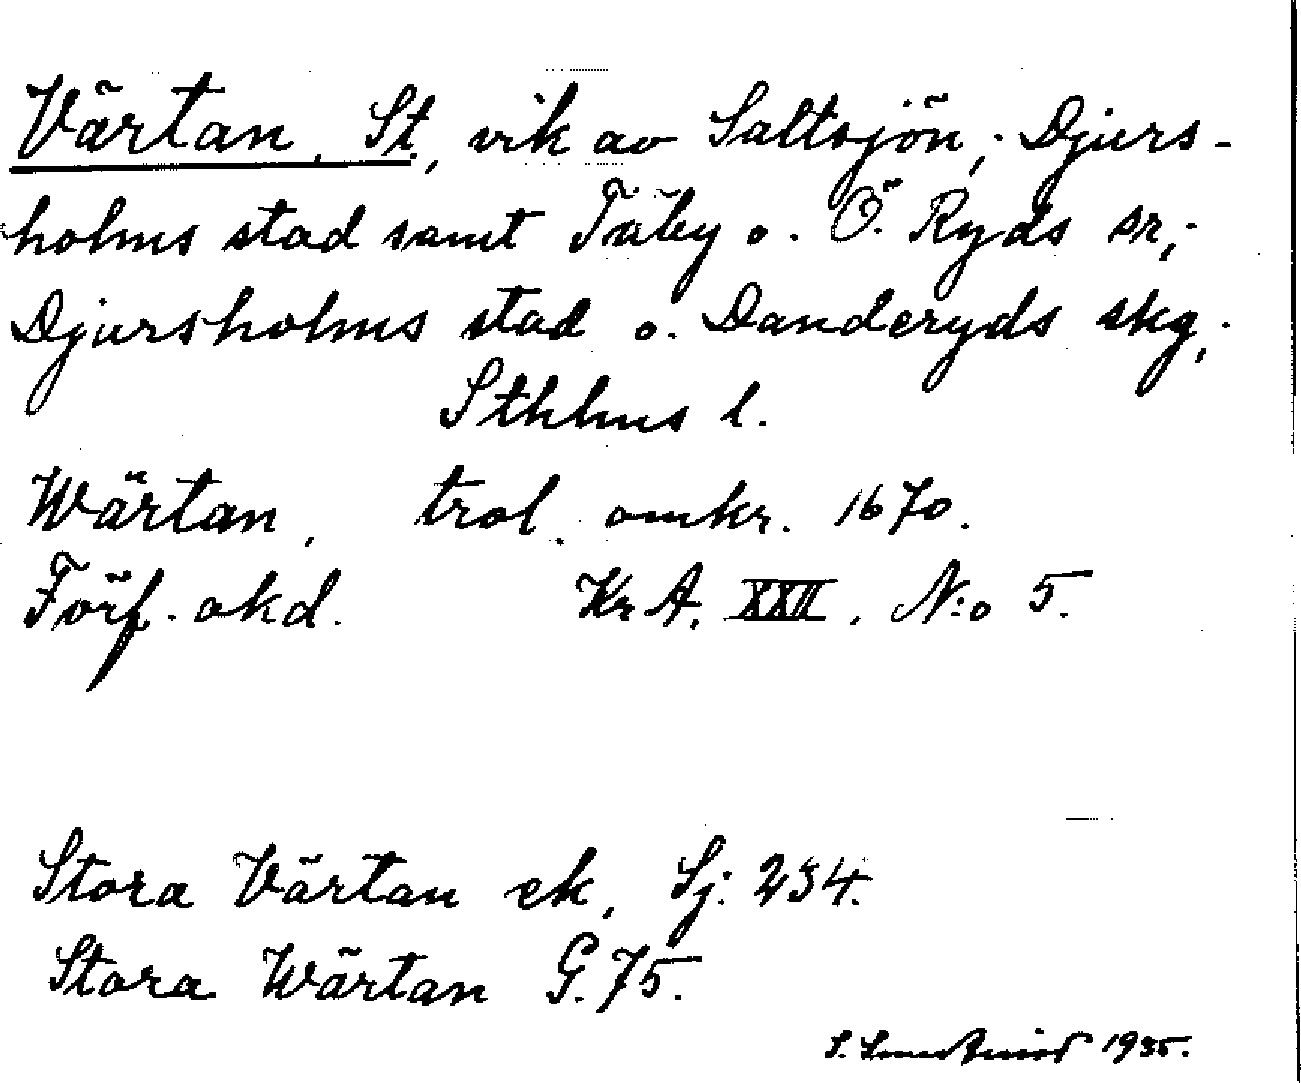 Värtan, St., vik av Saltsjön; Djurs-
holms stad samt Täby o. Ö. Ryds sr,;
Djursholms stad o. Danderyds skg,
Sthlms l.
Wärtan, trol. omkr. 1670.
Förf. okd. Kr A, XXII, N:o 5.
Stora Värtan ek, Sj: 234.
Stora Wärtan G. 75.
S. 1935.